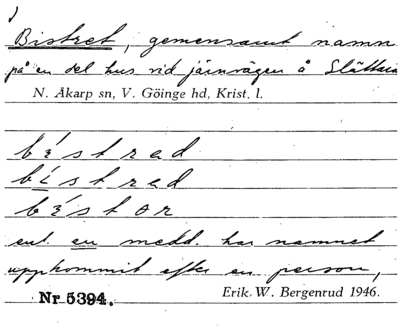 )
Bistret, gemensamt namn
på en del hus vid järnvägen å
N. Åkarp sn, V. Göinge hd, Krist. l.
bístrad
bístrad
bístor
enl. en medd. har namnet
uppkommit efter en person,
Nr 5394. Erik W. Bergenrud 1946.